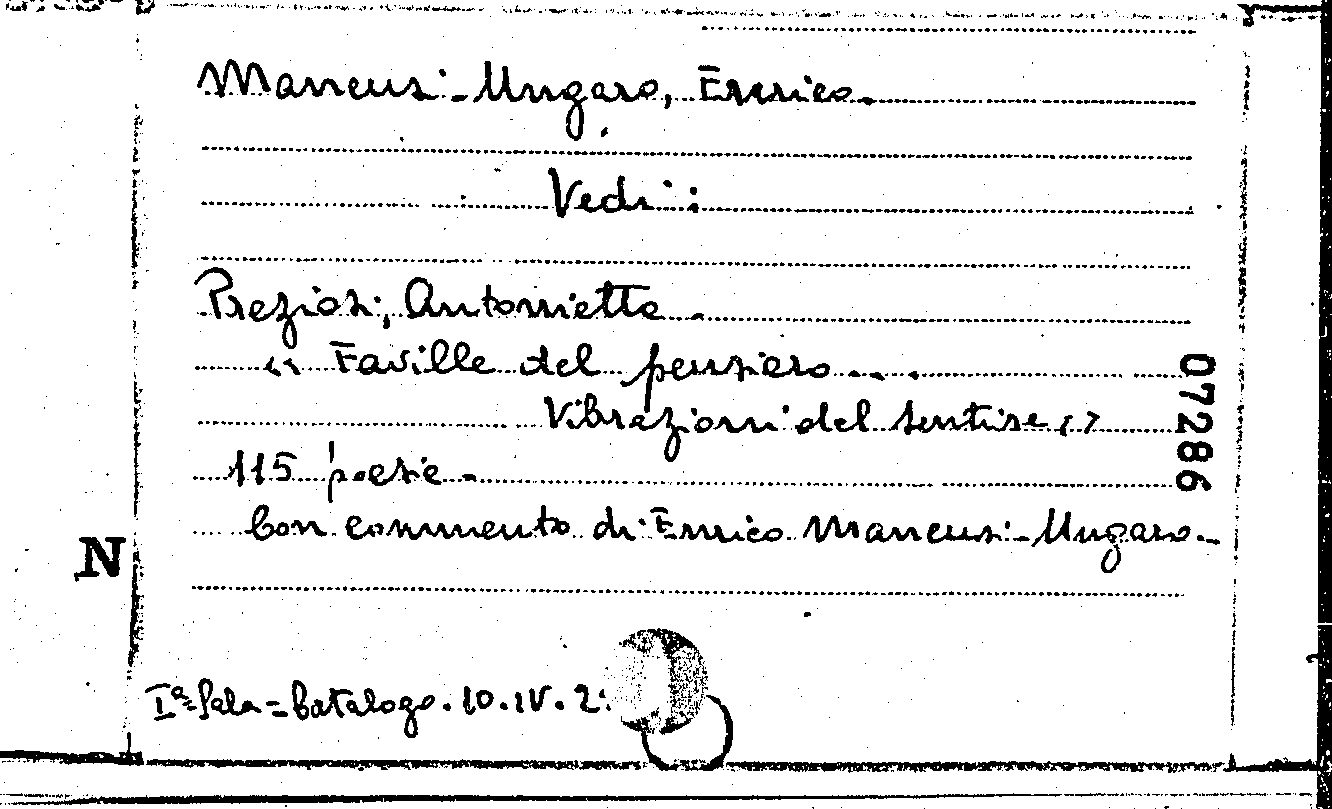 Mancusi-Ungaro, Enrico.
Vedi:
Preziosi, Antonietta.
« Faville del pensiero...
Vibrazioni del sentire »
115 poesie.
Con commento di Enrico Mancusi-Ungaro.
N
07286
Iª Sala = Catalogo. 10. IV. 2.